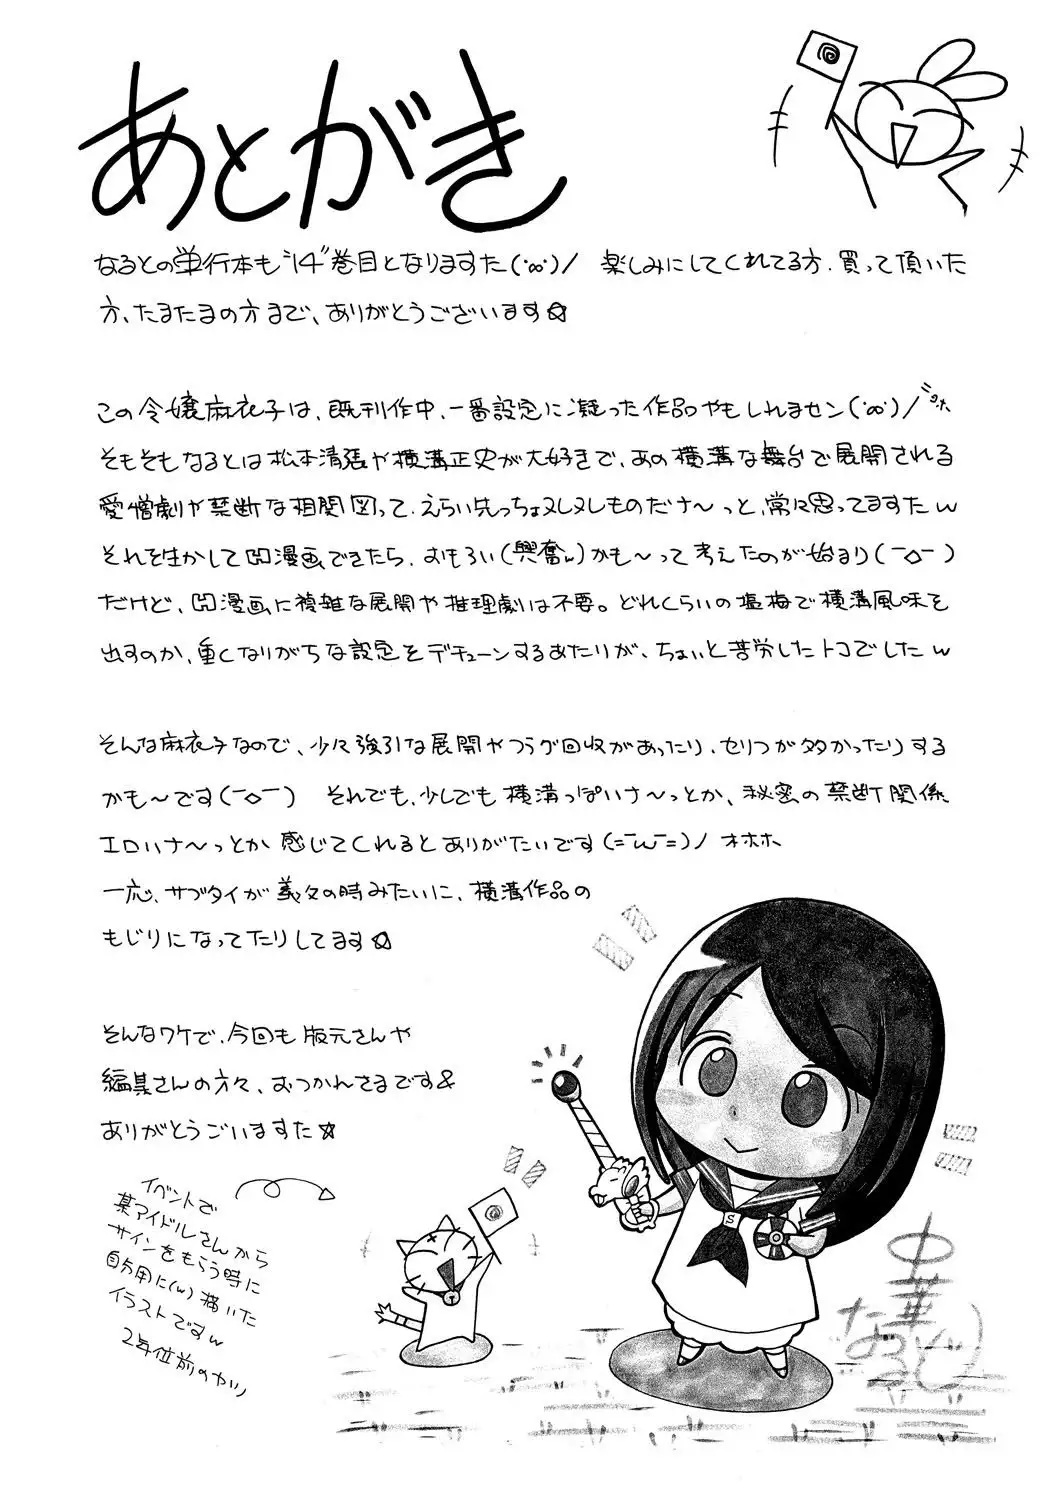 あとがき
なるとの単行本も"14"巻目となりますた(・∞・)ノ 楽しみにしてくれてる方、買って頂いた
方、たまたまの方まで、ありがとうございます☆
この令嬢麻衣子は、既刊作中、一番設定に凝った作品やもしれませン(・∞・)ノ
そもそもなるとは松本清張や横溝正史が大好きで、あの横溝な舞台で展開される
愛憎劇や禁断な相関図って、えらい先っちょヌレヌレしものだナ〜っと、常々思ってますたw
それを生かして凹漫画できたら、おもろい(興奮w)かも〜って考えたのが始まり(￣◇￣)
だけど、凹漫画に複雑な展開や推理劇は不要。どれくらいの塩梅で横溝風味を
出すのか、重くなりがちな設定をデチューンするあたりが、ちょいと苦労したトコでしたw
そんな麻衣子なので、少々強引な展開やフラグ回収があったり、セリフが多かったりする
かも〜です(￣◇￣) それでも、少しでも横溝っぽいナ〜っとか、秘密の禁断関係
エロいナ〜っとか感じてくれるとありがたいです(=￣ω￣=)ノ オホホ
一応、サブタイが義々の時みたいに、横溝作品の
もじりになってたりしてます☆
そんなワケで、今回も版元さんや
編集さんの方々、おつかれさまです&
ありがとうございますた☆
イベントで
某アイドルさんから
サインをもらう時に
自分用に(w)描いた
イラストですw
2年位前のヤツ
S
中華
なると